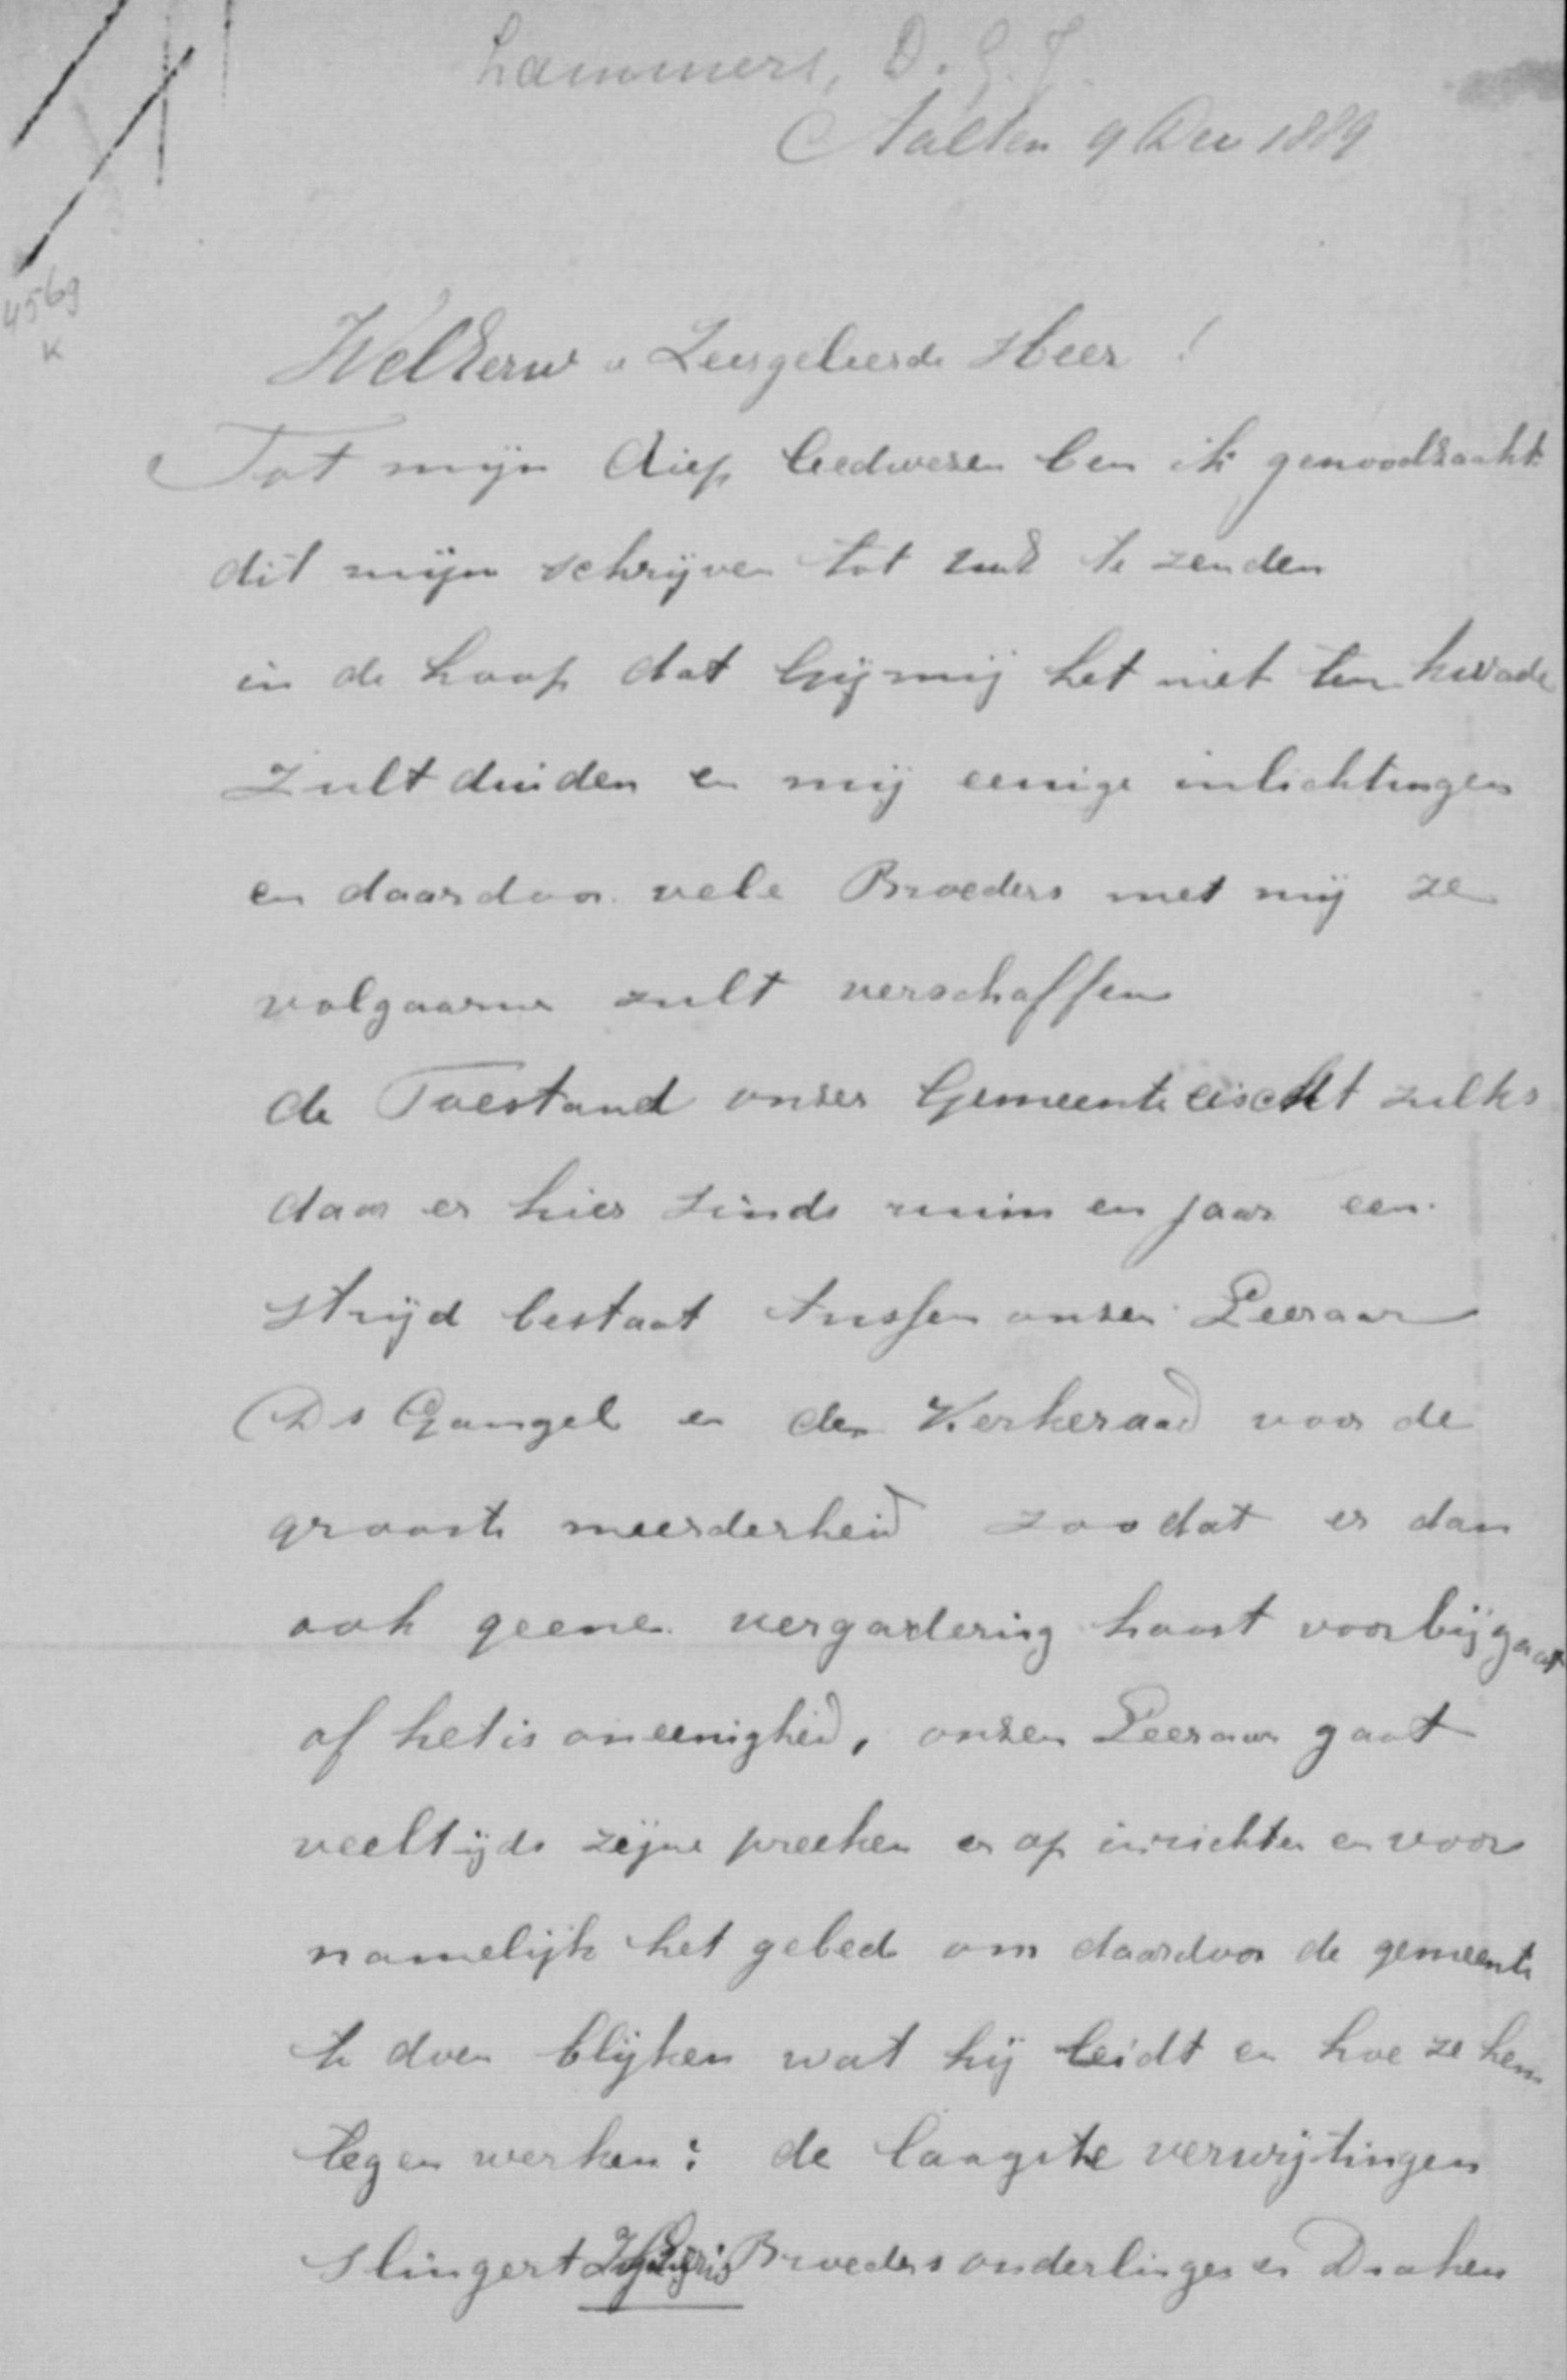 Lammers, D. G. J.
Aalten 9 Dec 1889
4569
K
WelEerw Zeergeleerde Heer!
Tot mijn diep leedwesen ben ik genoodsaakt
dit mijn schrijven tot UwE te zenden
in de hoop dat Gij mij het niet ten kwade
zult duiden en mij eenige inlichtingen
en daardoor vele Broeders met mij ze
volgaarne zult verschaffen
de Toestand onzer Gemeente eischt zulks
daar er hier sinds ruim en jaar een
strijd bestaat tussen onsen Leeraar
Ds Gangel en den Kerkeraad voor de
grootste meerderheid zoodat er dan
ook geene vergadering haast voorbijgaat
of het is oneenigheid, onsen Leeraar gaat
veeltijds zijne preeken er op inrichten en voor
namelijk het gebed om daardoor de gemeente
te doen blijken wat hij leidt en hoe ze hem
tegen werken: de laagste verwijtingen
slingert Broeders onderlingen en Draken